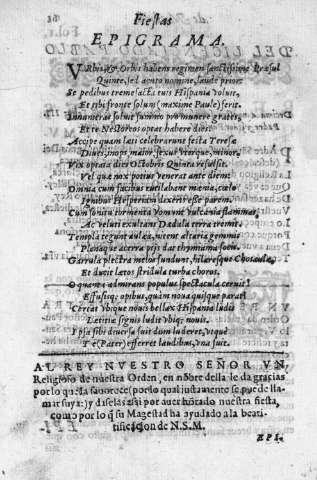 Fiestas
EPIGRAMA.
VRbis, & Orbis habens regimen sanctissime Præsul
Quinte, sed a quo nomine, laude prior.
Se pedibus tremefacta tuis Hispania voluit,
Et tibi fronte solum (maxime Paule) ferit.
Innumeras soluit summo pro munere grates,
Et te Nestoreos optat habere dies.
Accipe quam læti celebrarunt festa Teresæ
Diues, inops, natus, sexus vterque, minor,
Vix optata dies Octobris Quinta
Vel quæ nox potius venerat ante diem:
Omnia cum facibus rutilabant mœnia, cælo
Ignibus Hesperium dixeris esse parem.
Cum sonitu tormenta vomunt vulcania flammas,
Ac velut exultans Dædala terra tremit.
Templa tegunt aulæa, nitent altaria gemmis
Planaque acerra pijs dat thymiama focis.
Garrula plectra melos fundunt, hilaresque
Et ducit lætos stridula turba choros.
O quanta admirans populus spectacula cernit!
Effusisq; opibus, quàm noua quisque parat!
Certat vbique nouis bellax Hispania ludis
Lætitiæ signis ludit vbiq; nouis.
Ypsa sibi diuersa suit dum luderet, vtque
Te (Pater) efferret laudibus, vna fuit.
AL REY NVESTRO SEÑOR VN
Religioso de nuestra Orden, en nõbre della le da gracias
por lo q̃ la fauorece (por lo qual justamente se puede lla-
mar suya:) y daselas assi por auer hõrado nuestra fiesta,
como por lo q̃ su Magestad ha ayudado a la beati-
tificacion de N.S.M.
EPI-